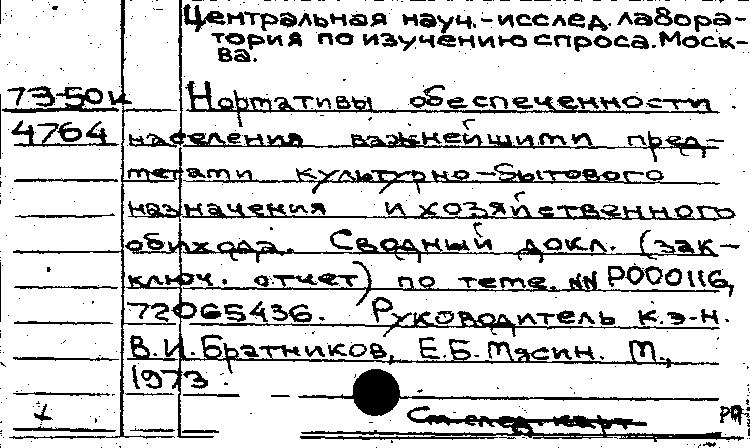 Центральная науч.-исслед. лабора-
тория по изучению спроса. Моск-
ва.
73-50к Нормативы обеспеченности
4764 населения важнейшими пред-
метами культурно-бытового
назначения и хозяйственного
обихода. Сводный докл. (зак-
ключ. отчет) по теме. NN Р000116,
72065436. Руководитель к.э-н.
В.И.Братников, Е.Б.Мясин. М.,
1973.
См след. карт